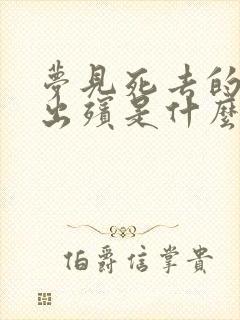 夢見死去的
出殯是什麼
伯爵信掌貴